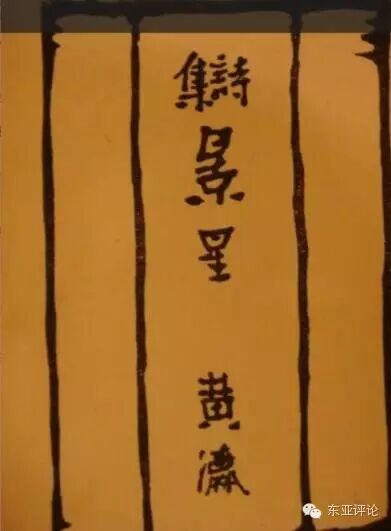 詩集
景星
黄瀛
东亚评论